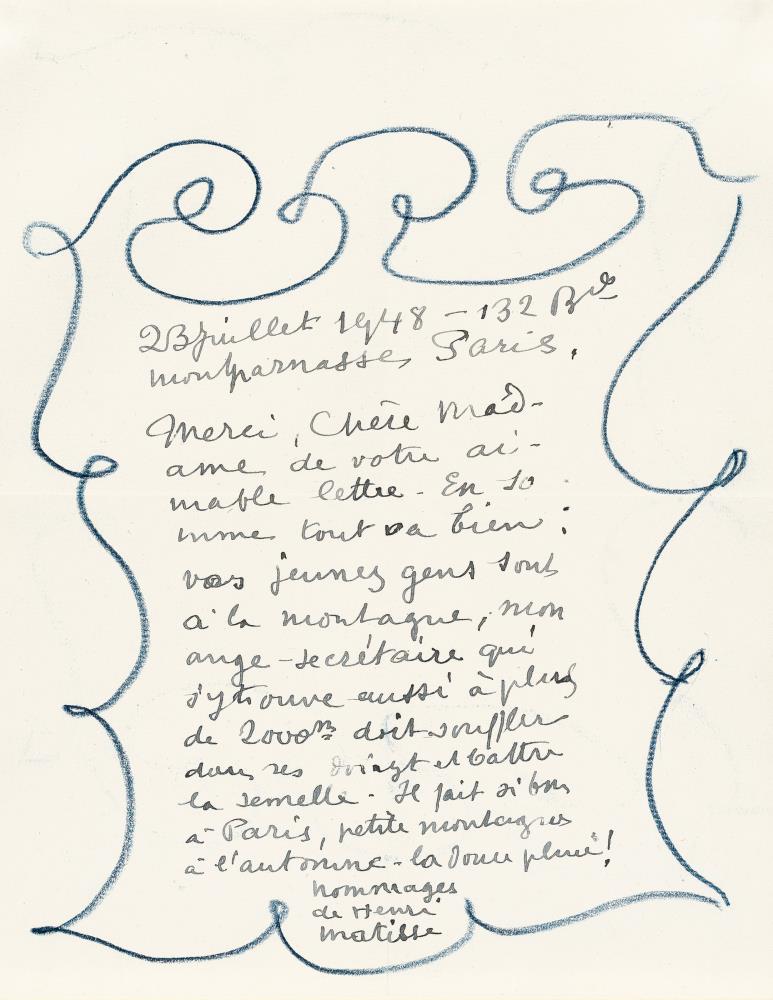 23 juillet 1948 - 132 Bvd
montparnasse, Paris.
Merci, Chère Mad-
ame de votre ai-
mable lettre - En so
mme tout va bien :
vos jeunes gens sont
à la montagne, mon
ange-secrétaire qui
s'y trouve aussi à plus
de 2000m doit souffler
dans ses doigt et battre
la semelle - Il fait si bon
à Paris, petite montagne
à l'automne - la douce pluie !
hommages
de Henri
matisse